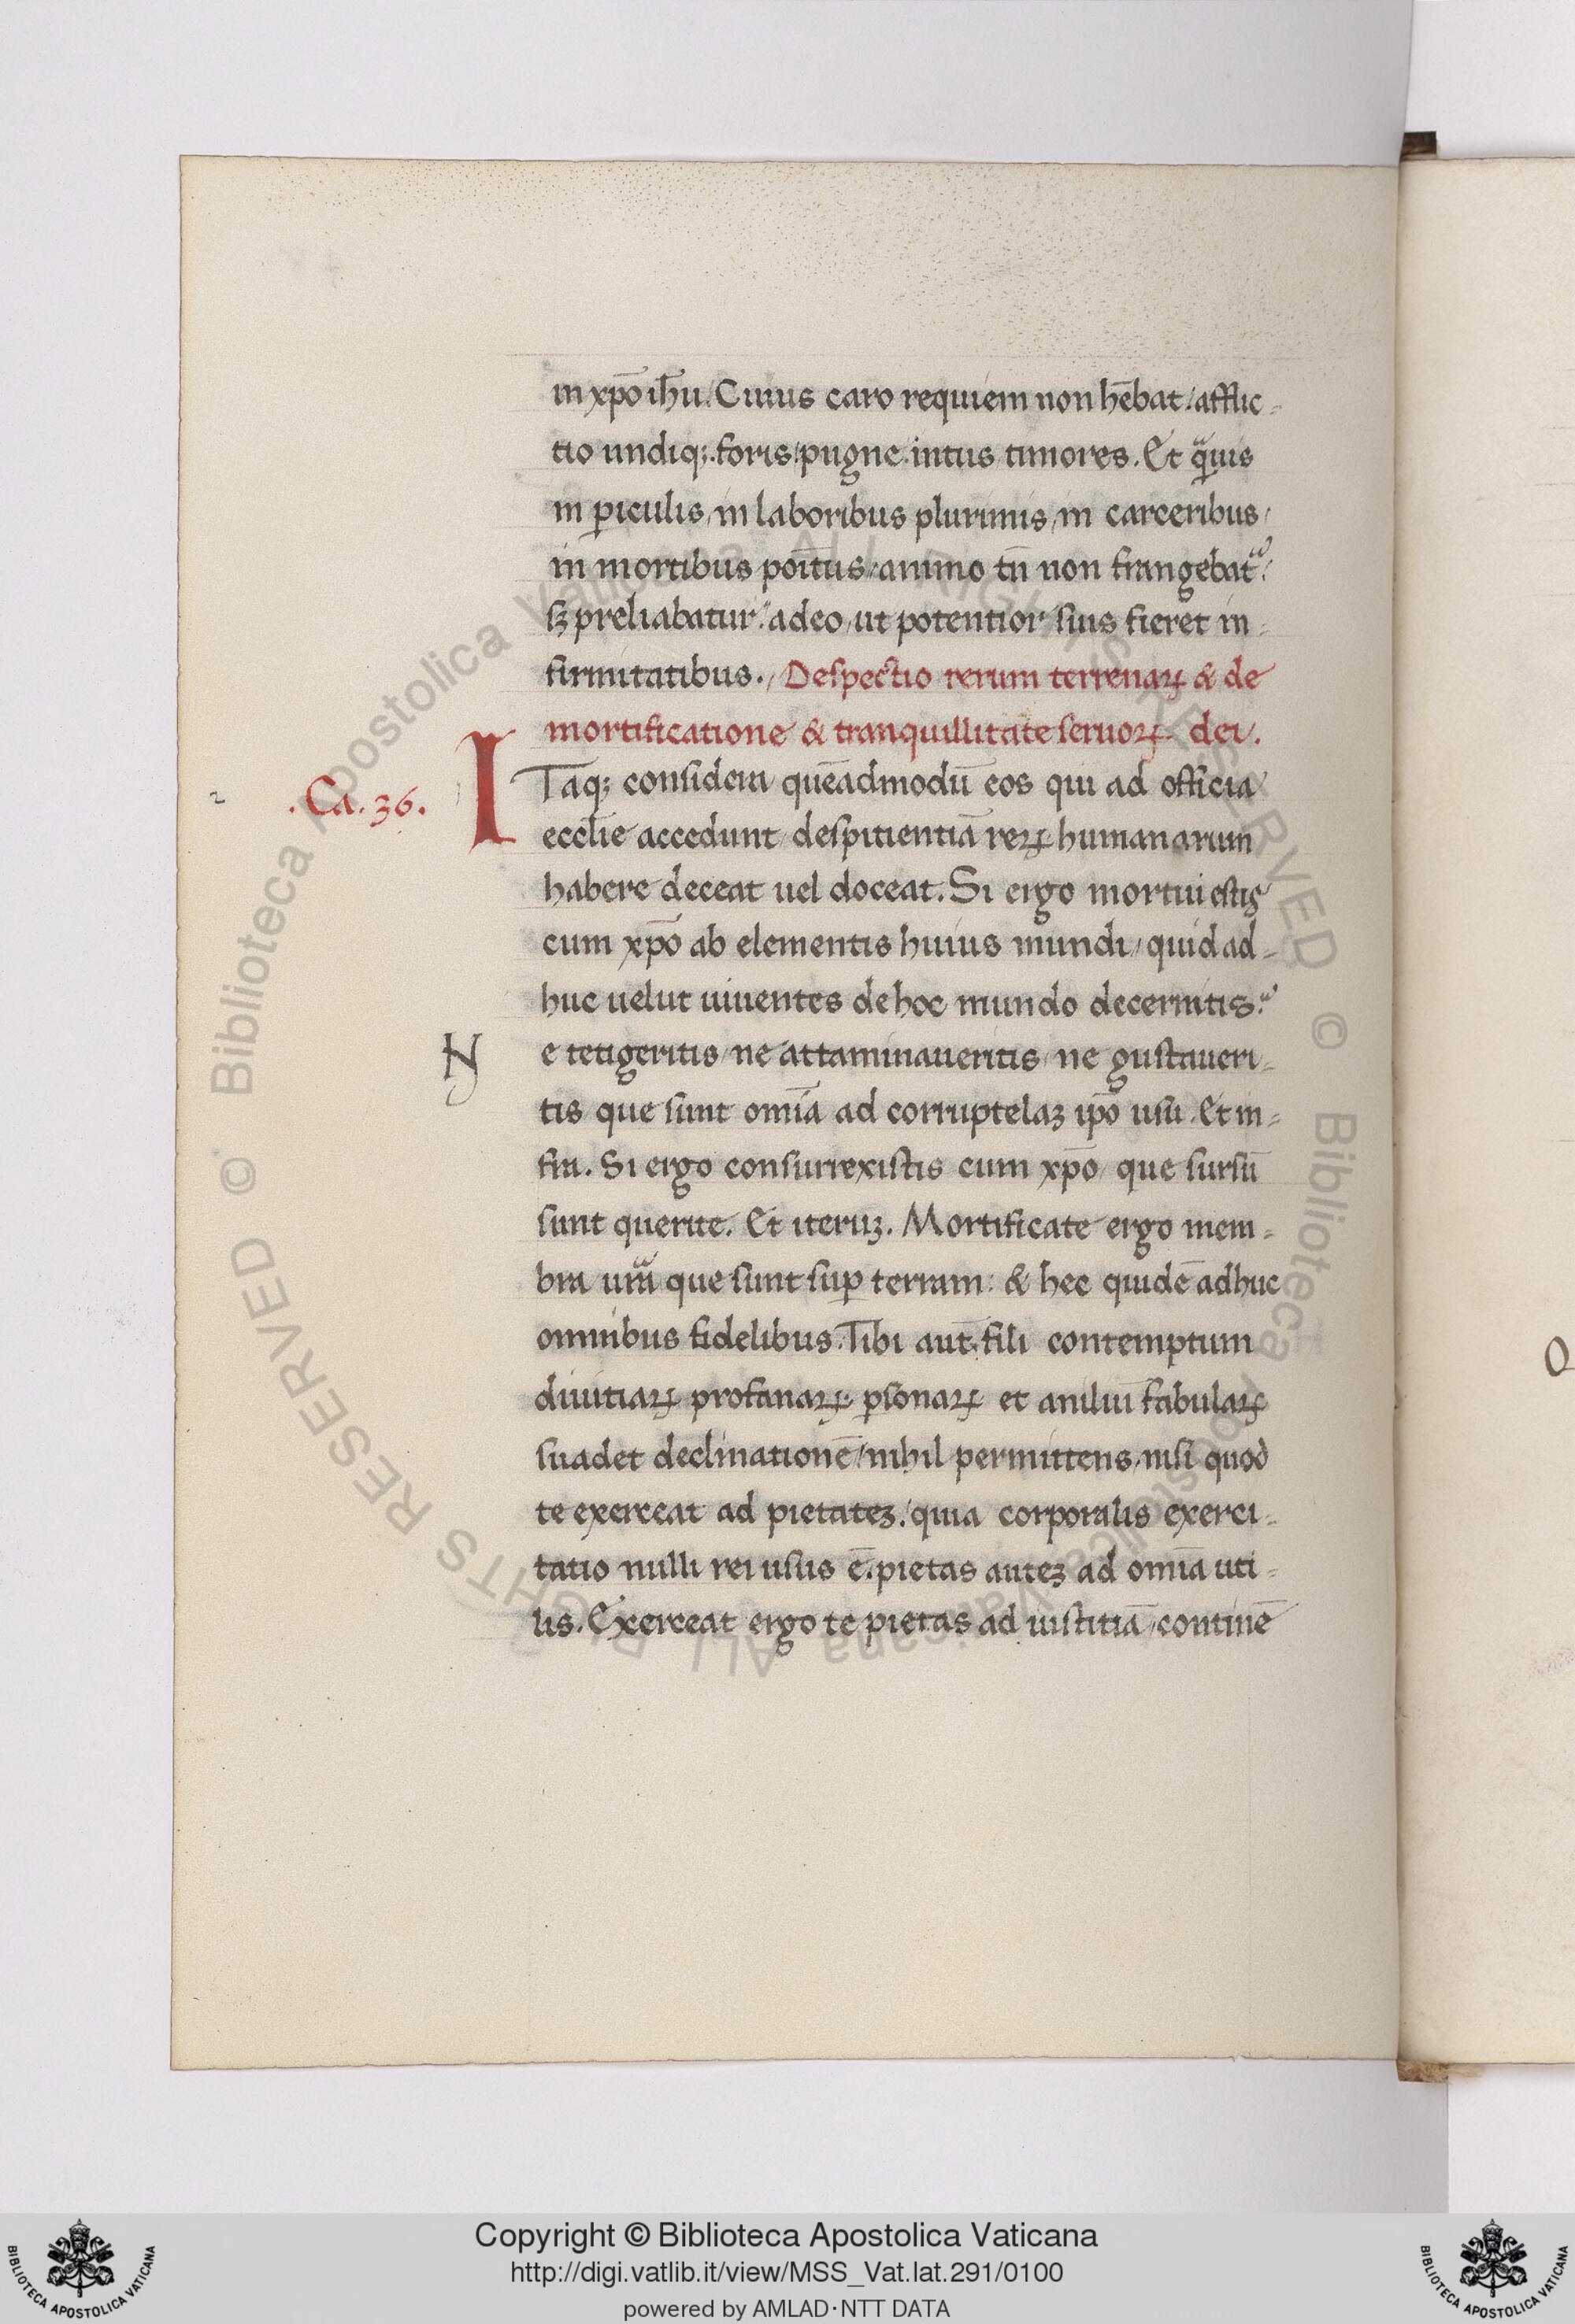 in xp̄o ih̄u. Cuius caro requiem non hēbat. afflic-
tio undiqꝫ. foris pugne. intus timores. Et q̄uis
in ꝑiculis, in laboribus plurimis, in carceribus,
in mortibus poītus animo tn̄ non frangebat.
sꝫ preliabatur. adeo, ut potentior suis fieret in-
firmitatibus. Despectio rerum terrenaꝝ & de
mortificatione & tranquillitate seruoꝝ dei.
.Ca. 36.
ITaqꝫ considera quēadmodū eos qui ad officia
eccl̄ie accedunt despitientiā reꝝ humanarum
habere deceat uel doceat. Si ergo mortui estis
cum xp̄o ab elementis huius mundi, quid ad-
huc uelut uiuentes de hoc mundo decernitis.
Ne tetigeritis, ne attaminaueritis, ne gustaueri-
tis que sunt om̄ia ad corruptelaꝫ ip̄o usu. Et in-
fra. Si ergo consurrexistis cum xp̄o, que sursū
sunt querite. Et iteruꝫ. Mortificate ergo mem-
bra ur̄a que sunt suꝑ terram: & hec quidē adhuc
omnibus fidelibus. Tibi aut̄ fili contemptum
diuitiaꝝ profanaꝝ ꝑsonaꝝ et aniliū fabulaꝝ
suadet declinationē, nihil permittens, nisi quod
te exerceat ad pietateꝫ. quia corporalis exerci-
tatio nulli rei usus ē. pietas auteꝫ ad om̄ia uti-
lis. Exerceat ergo te pietas ad iustitiā, continē
© Biblioteca Apostolica Vaticana ALL RIGHTS RESERVED © Biblioteca Apostolica Vaticana ALL RIGHTS RESERVED
Copyright © Biblioteca Apostolica Vaticana
http://digi.vatlib.it/view/MSS_Vat.lat.291/0100
powered by AMLAD·NTT DATA
BIBLIOTECA APOSTOLICA VATICANA
BIBLIOTECA APOSTOLICA VATICANA